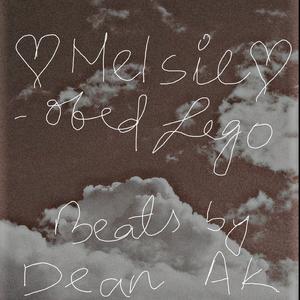 ♡Melsie♡
-Obed Lego
Beats by
Dean AK